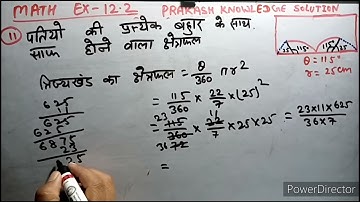 MATH EX-12.2 PRAKASH KNOWLEDGE SOLUTION
(11) पत्तियो की प्रत्येक बुहार के साथ
साफ होने वाला क्षेत्रफल
115° 115°
θ = 115°
r = 25cm
त्रिज्यखंड का क्षेत्रफल = θ/360 πr²
= 115/360 × 22/7 × (25)²
= 115/360 × 22/7 × 25 × 25 = 23×11×625/36×7
23 11
36 72
=
625
11
625
625
6875
23
PowerDirector